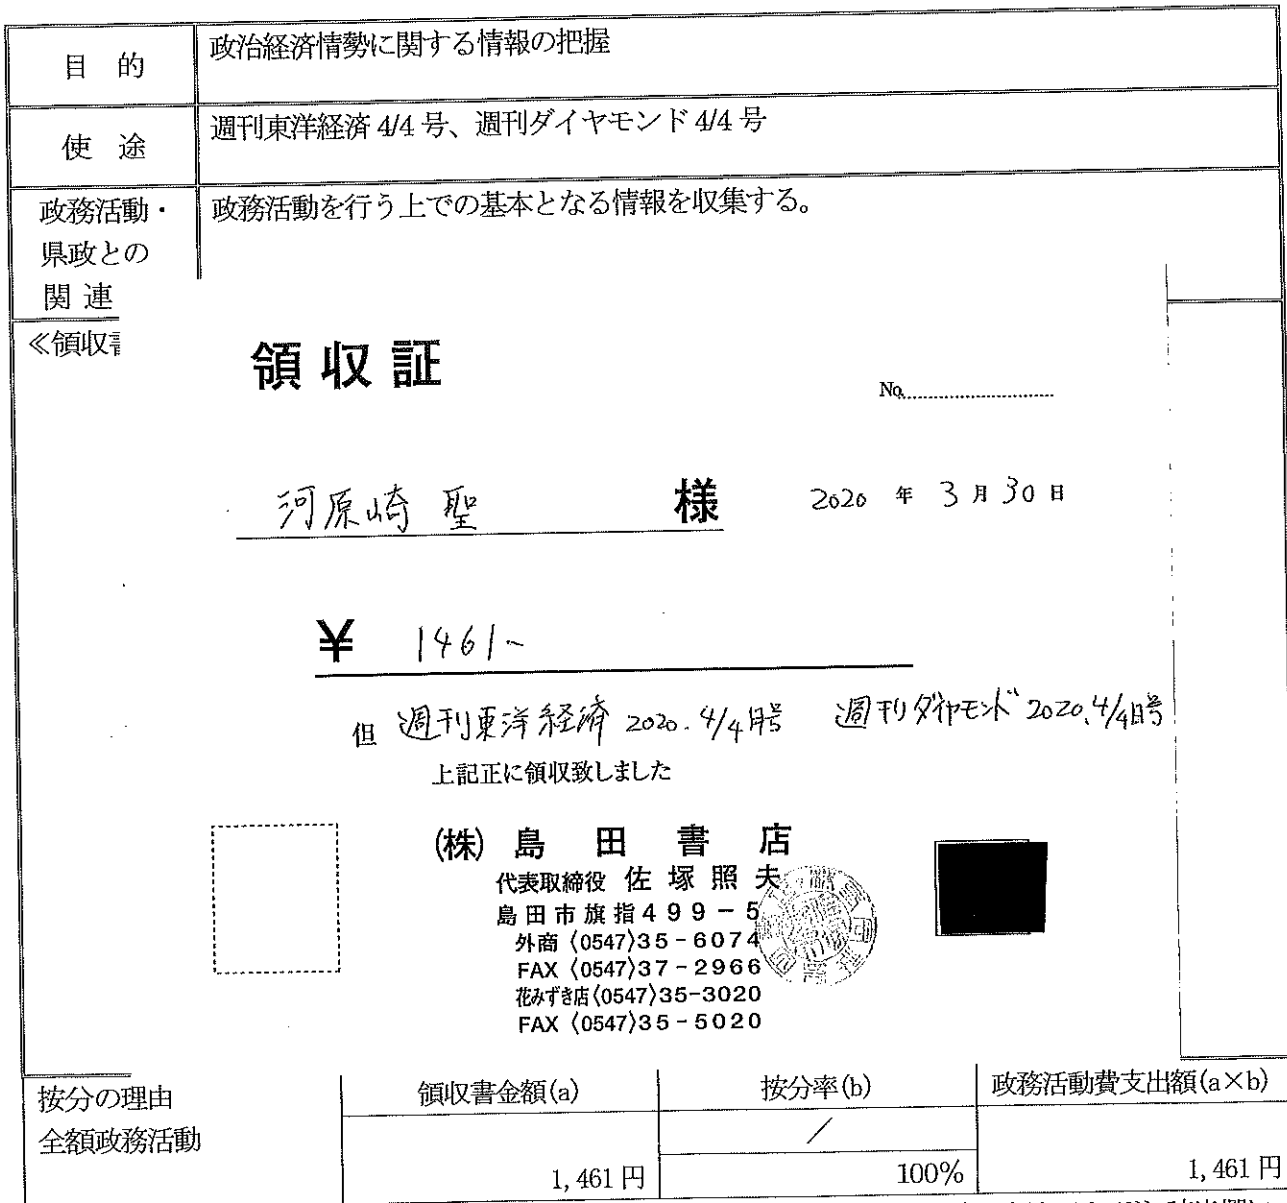 目 的
政治経済情勢に関する情報の把握
使 途
週刊東洋経済 4/4 号、週刊ダイヤモンド 4/4 号
政務活動・
県政との
関 連
政務活動を行う上での基本となる情報を収集する。
≪領収書
領収証
No.
河原崎 聖 様
2020 年 3 月 30 日
¥ 1461-
但 週刊東洋経済 2020. 4/4日号 週刊ダイヤモンド 2020. 4/4日号
上記正に領収致しました
(株) 島 田 書 店
代表取締役 佐 塚 照 夫
島田市旗指499-5
外商〈0547〉35-6074
FAX〈0547〉37-2966
花みずき店〈0547〉35-3020
FAX〈0547〉35-5020
按分の理由
全額政務活動
領収書金額(a)
按分率(b)
政務活動費支出額(a×b)
/
1,461 円
100%
1,461 円